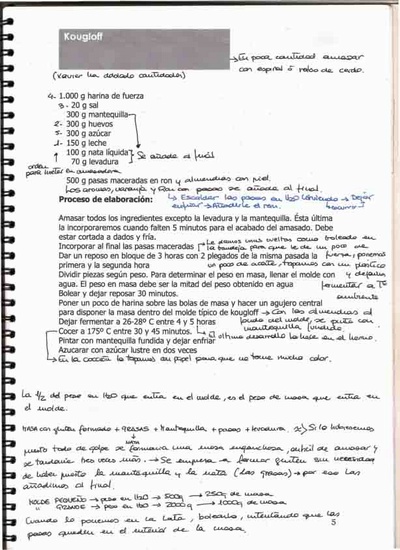 Kougloff
→ En poca cantidad amasar
con espiral ó rabo de cerdo.
(Xavier ha doblado cantidades)
4- 1.000 g harina de fuerza
3- 20 g sal
300 g mantequilla
2- 300 g huevos
5- 300 g azúcar
1- 150 g leche
100 g nata líquida
70 g levadura
→ Se añade al final
orden para meter en amasadora
500 g pasas maceradas en ron y almendras con piel.
Los aromas, naranja y Ron con pasas se añade al final.
Proceso de elaboración: → Escaldar las pasas en H2O hirviendo → Dejar
enfriar → Añadirle el ron.
Amasar todos los ingredientes excepto la levadura y la mantequilla. Ésta última
la incorporaremos cuando falten 5 minutos para el acabado del amasado. Debe
estar cortada a dados y fría.
Incorporar al final las pasas maceradas
→ Le damos unas vueltas como boleado en
la bandeja para que le de un poco de
fuerza, ponemos
un poco de aceite, tapamos con un plástico
y dejamos
fermentar a Tª
ambiente
Dar un reposo en bloque de 3 horas con 2 plegados de la misma pasada la
primera y la segunda hora
Dividir piezas según peso. Para determinar el peso en masa, llenar el molde con
agua. El peso en masa debe ser la mitad del peso obtenido en agua
Bolear y dejar reposar 30 minutos.
Poner un poco de harina sobre las bolas de masa y hacer un agujero central
para disponer la masa dentro del molde típico de kougloff → Con las almendras al
fondo del molde, se pinta con
mantequilla fundida.
Dejar fermentar a 26-28º C entre 4 y 5 horas
Cocer a 175º C entre 30 y 45 minutos. → El último desarrollo lo hace en el horno.
Pintar con mantequilla fundida y dejar enfriar
Azucarar con azúcar lustre en dos veces
→ En la cocción le tapamos un papel para que no tome mucho color.
La 1/2 del peso en H2O que entra en el molde, es el peso de masa que entra en
el molde.
MASA con gluten formado + GRASAS + Mantequilla + pasas + levadura.
nata
Si lo hiciéramos
mucho todo de golpe se formaría una masa enganchosa, difícil de amasar y
se tardaría tres veces más. → Se empieza a formar gluten sin necesidad
de haber puesto la mantequilla y la nata (las grasas) → por eso las
añadimos al final.
MOLDE PEQUEÑO → peso en H2O → 500g → 250g de masa
" GRANDE → peso en H2O → 2000g → 1000g de masa
5
Cuando lo ponemos en la lata, bolearlo, intentando que las
pasas queden en el interior de la masa.